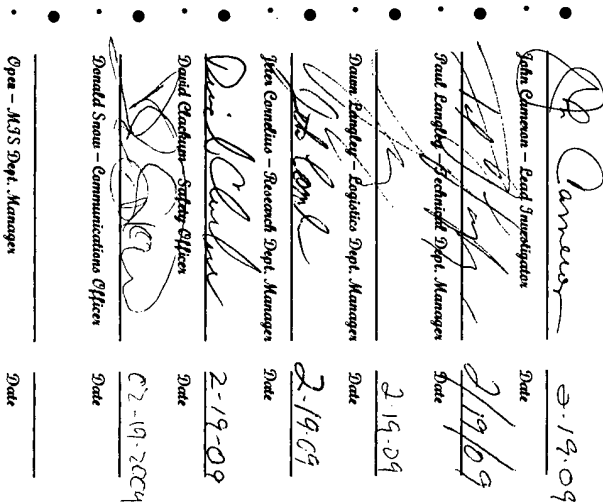 John Cameron 2-19-09
John Cameron – Lead Investigator Date
2/19/09
Paul Langley – Technical Dept. Manager Date
2-19-09
Dawn Langley – Logistics Dept. Manager Date
2-19-09
Jeter Cornelius – Research Dept. Manager Date
David 2-19-09
David – Safety Officer Date
02-19-2009
Donald Snow – Communications Officer Date
Open – MIS Dept. Manager Date